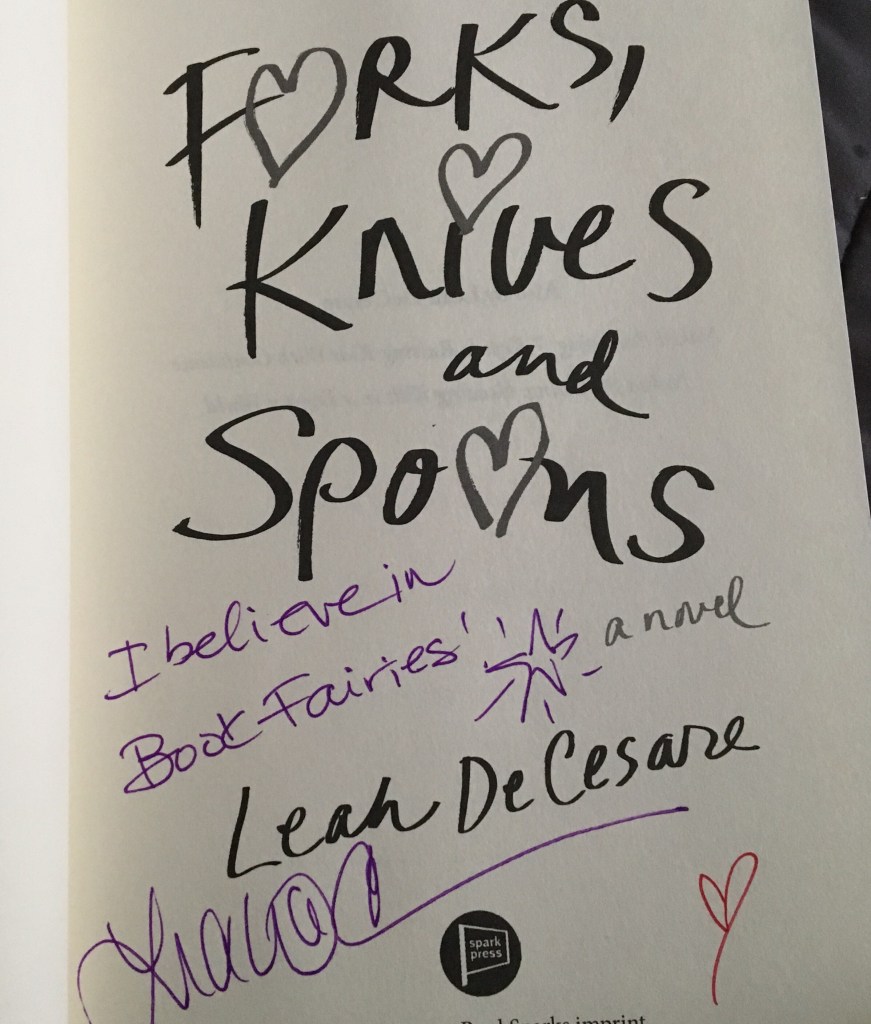 Forks,
Knives
and
Spoons
I believe in
Book Fairies!
a novel
Leah DeCesare
spark
press
BookSparks imprint